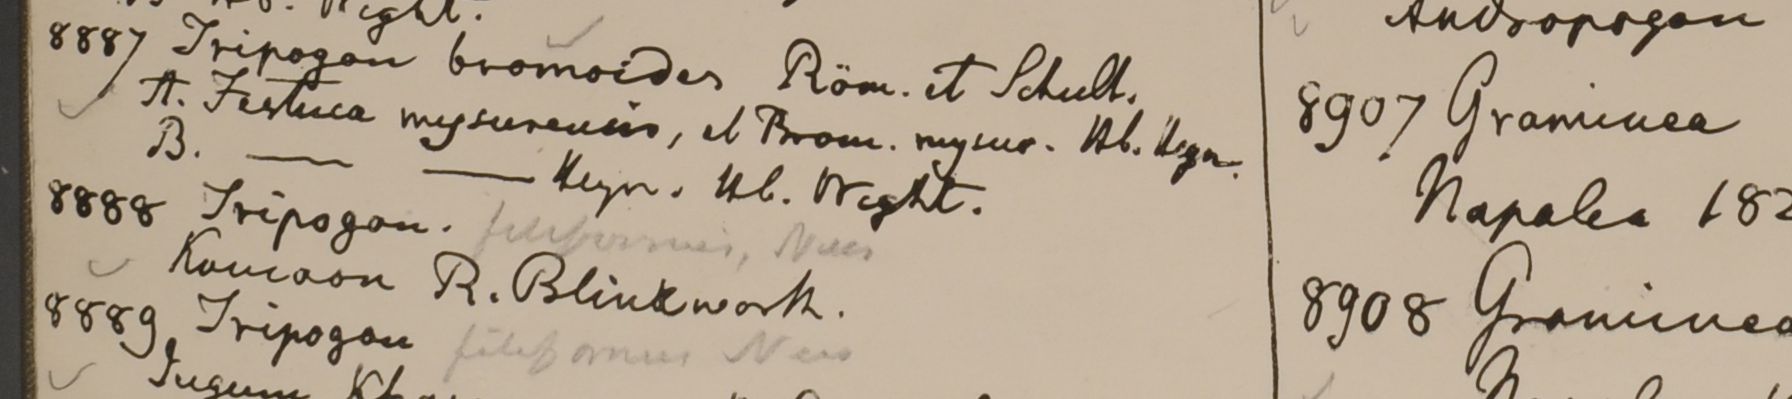 Hb. Wight.
8887 Tripogon bromoides Röm. et Schult.
A. Festuca mysurensis, et Brom. mysur. Hb. Heyn.
B. — — Heyn. Hb. Wight.
8888 Tripogon. filiformis, Nees
Kamaon R. Blinkworth.
8889 Tripogon filiformis Nees
Andropogon
8907 Graminea
Napalea 182
8908 Graminea